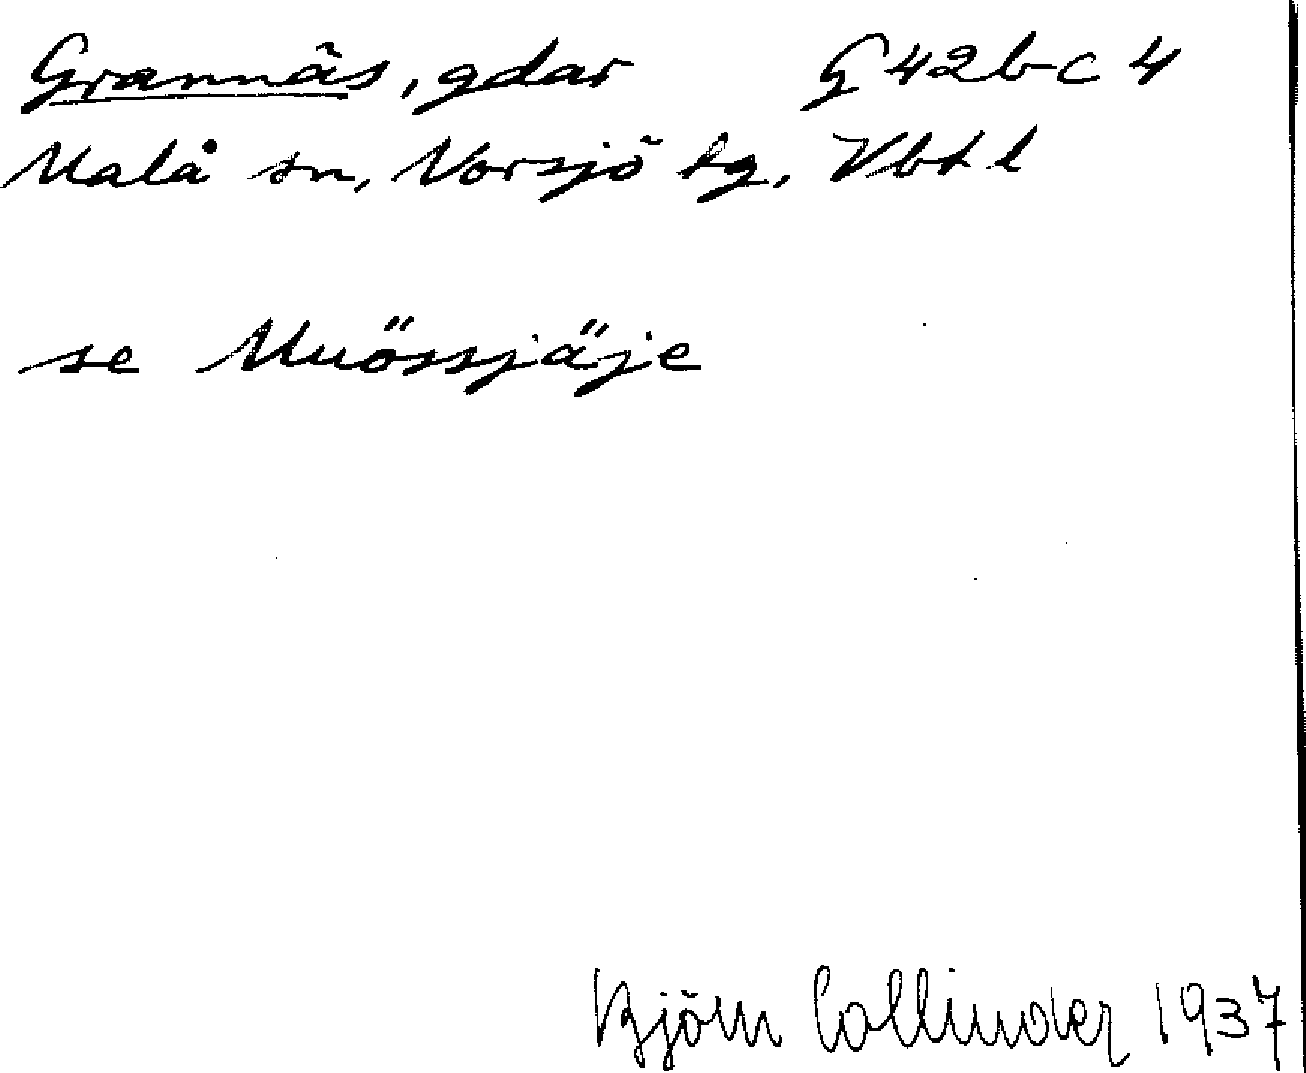 Grannäs, gdar G 42bc 4
Malå sn, Norsjö tg, Vbtl
se Muössjäje
Björn Collinder 1937